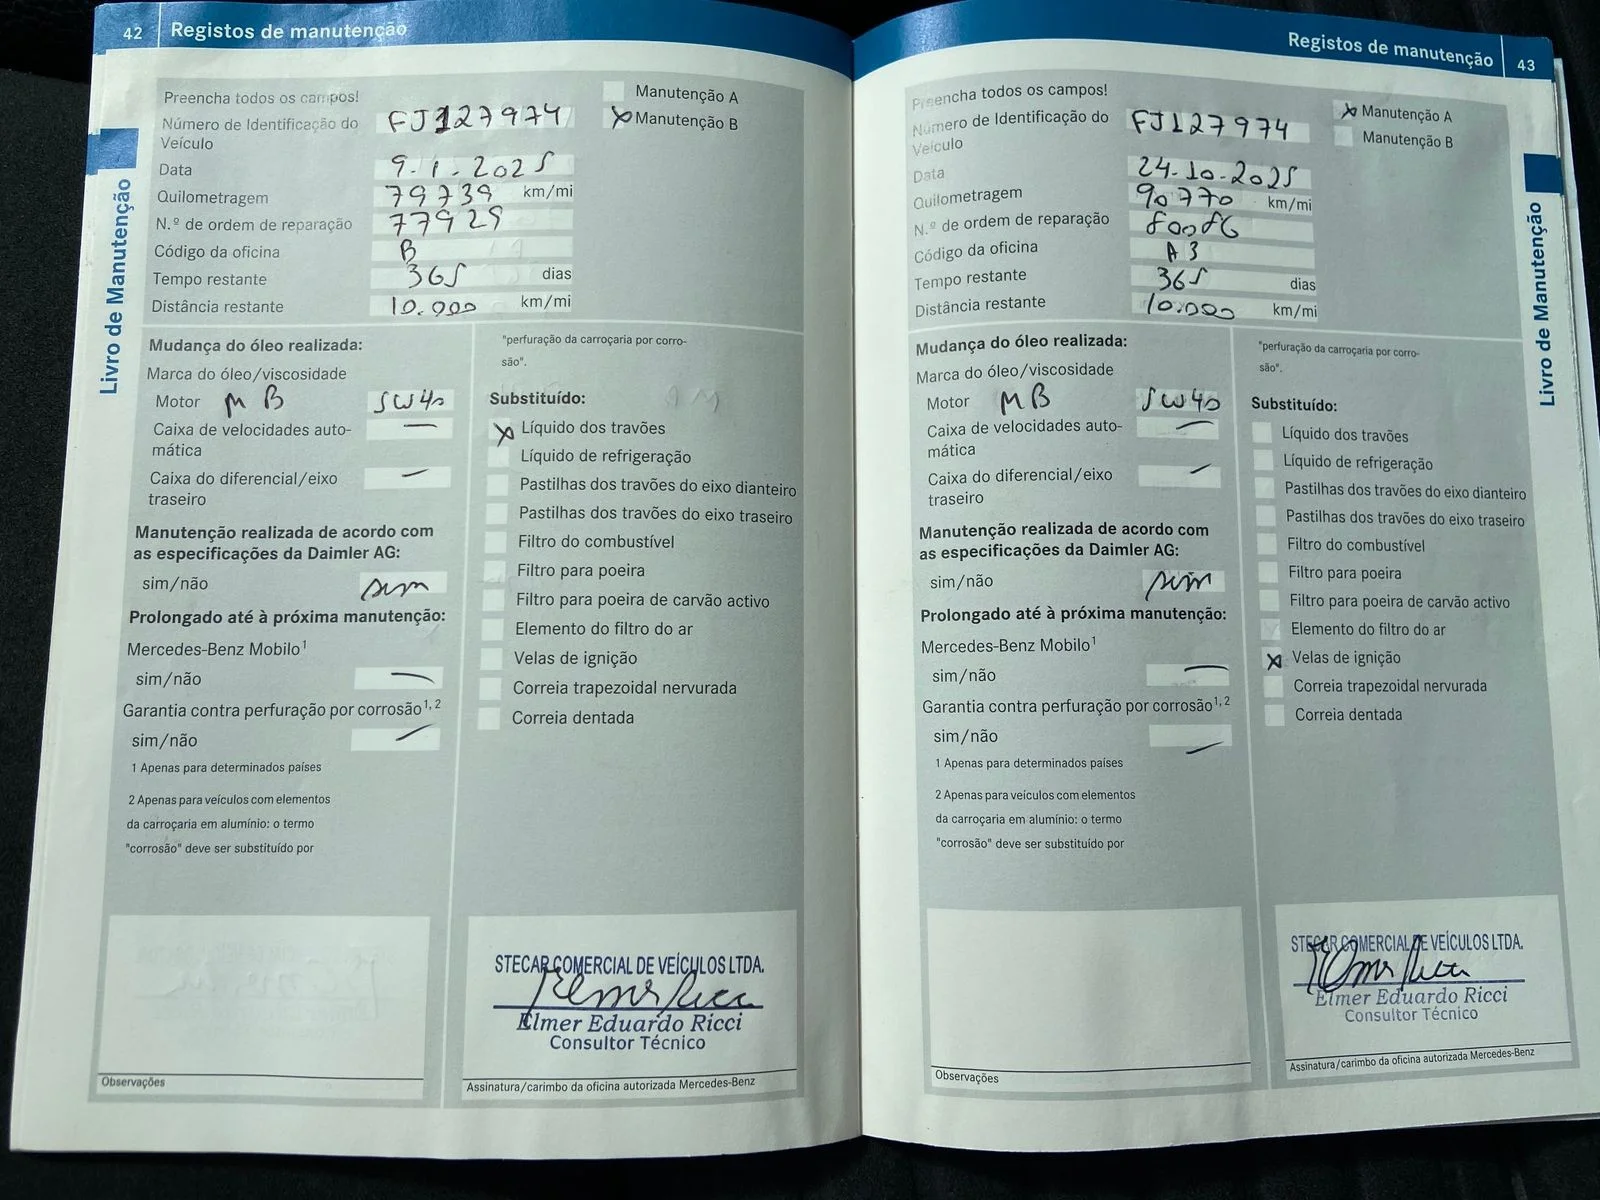 42 Registos de manutenção
Preencha todos os campos!
Manutenção A
X Manutenção B
Número de Identificação do Veículo FJ127974
Data 9.1.2025
Quilometragem 79739 km/mi
N.º de ordem de reparação 77929
Código da oficina B
Tempo restante 365 dias
Distância restante 10.000 km/mi
Livro de Manutenção
Mudança do óleo realizada:
Marca do óleo/viscosidade
Motor MB 5W40
Caixa de velocidades auto-
mática —
Caixa do diferencial/eixo
traseiro —
Manutenção realizada de acordo com
as especificações da Daimler AG:
sim/não sim
Prolongado até à próxima manutenção:
Mercedes-Benz Mobilo1
sim/não —
Garantia contra perfuração por corrosão1, 2
sim/não —
1 Apenas para determinados países
2 Apenas para veículos com elementos
da carroçaria em alumínio: o termo
"corrosão" deve ser substituído por
"perfuração da carroçaria por corro-
são".
Substituído:
X Líquido dos travões
Líquido de refrigeração
Pastilhas dos travões do eixo dianteiro
Pastilhas dos travões do eixo traseiro
Filtro do combustível
Filtro para poeira
Filtro para poeira de carvão activo
Elemento do filtro do ar
Velas de ignição
Correia trapezoidal nervurada
Correia dentada
Observações
STECAR COMERCIAL DE VEÍCULOS LTDA.
Elmer Eduardo Ricci
Consultor Técnico
Assinatura/carimbo da oficina autorizada Mercedes-Benz
Registos de manutenção 43
Preencha todos os campos!
X Manutenção A
Manutenção B
Número de Identificação do Veículo FJ127974
Data 24-10-2025
Quilometragem 90770 km/mi
N.º de ordem de reparação 80086
Código da oficina A3
Tempo restante 365 dias
Distância restante 10.000 km/mi
Livro de Manutenção
Mudança do óleo realizada:
Marca do óleo/viscosidade
Motor MB 5W40
Caixa de velocidades auto-
mática —
Caixa do diferencial/eixo
traseiro —
Manutenção realizada de acordo com
as especificações da Daimler AG:
sim/não sim
Prolongado até à próxima manutenção:
Mercedes-Benz Mobilo1
sim/não —
Garantia contra perfuração por corrosão1, 2
sim/não —
1 Apenas para determinados países
2 Apenas para veículos com elementos
da carroçaria em alumínio: o termo
"corrosão" deve ser substituído por
"perfuração da carroçaria por corro-
são".
Substituído:
Líquido dos travões
Líquido de refrigeração
Pastilhas dos travões do eixo dianteiro
Pastilhas dos travões do eixo traseiro
Filtro do combustível
Filtro para poeira
Filtro para poeira de carvão activo
Elemento do filtro do ar
X Velas de ignição
Correia trapezoidal nervurada
Correia dentada
Observações
STECAR COMERCIAL DE VEÍCULOS LTDA.
Elmer Eduardo Ricci
Consultor Técnico
Assinatura/carimbo da oficina autorizada Mercedes-Benz